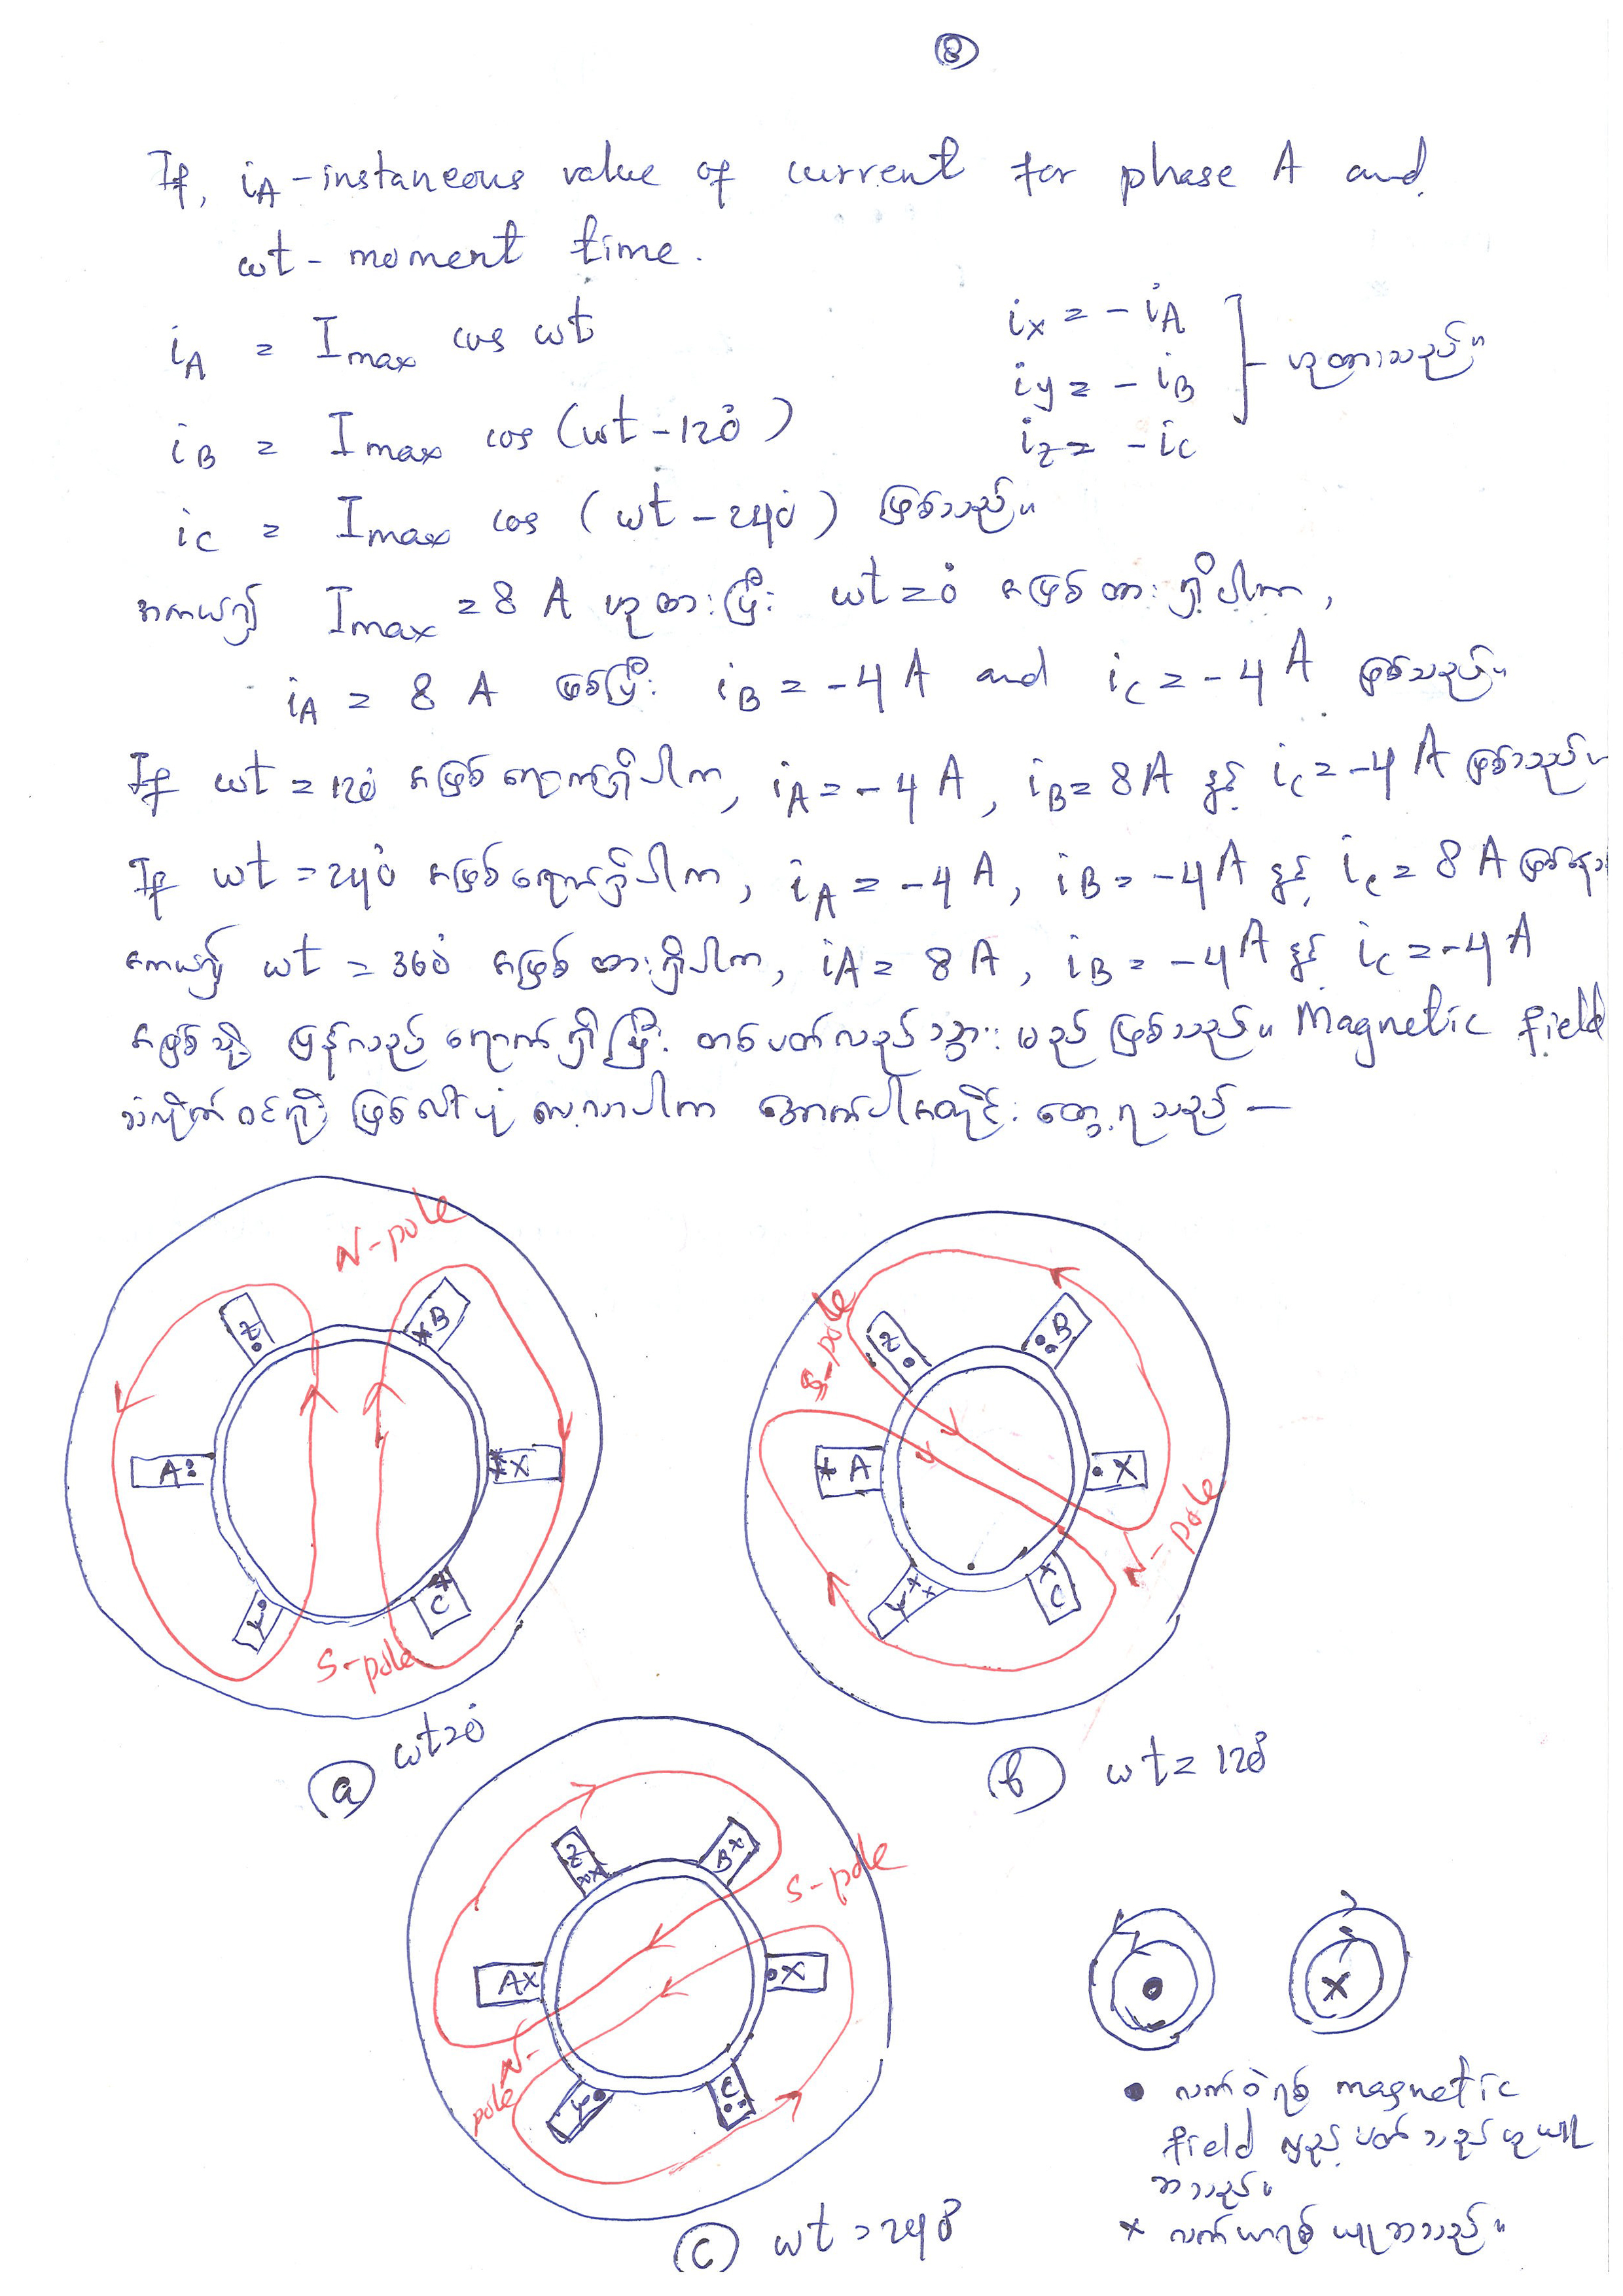 8
If, iA - instaneous value of current for phase A and
ωt - moment time.
iA = Imax cos ωt
iB = Imax cos (ωt - 120°)
iC = Imax cos (ωt - 240°) ဖြစ်သည်။
iX = - iA
iY = - iB
iZ = - iC
ဟုထားသည်။
အကယ်၍ Imax = 8 A ဟုထားပြီး ωt = 0° အဖြစ်ထားရှိပါက,
iA = 8 A ဖြစ်ပြီး iB = -4 A and iC = -4 A ဖြစ်သည်။
If ωt = 120° အဖြစ်ရောက်ရှိပါက, iA = -4 A, iB = 8A နှင့် iC = -4 A ဖြစ်သည်။
If ωt = 240° အဖြစ်ရောက်ရှိပါက, iA = -4 A, iB = -4A နှင့် iC = 8 A
အကယ်၍ ωt = 360° အဖြစ်ထားရှိပါက, iA = 8 A, iB = -4 A နှင့် iC = -4 A
အဖြစ်သို့ ပြန်လည်ရောက်ရှိပြီး တစ်ပတ်လည်သွားမည်ဖြစ်သည်။ Magnetic field
ဖြစ်ပေါ်ပုံ လေ့လာပါက အောက်ပါအတိုင်း တွေ့ရသည် —
N-pole
Z
B
A
X
Y
C
S-pole
a ωt = 0°
S-pole
Z
B
A
X
Y
C
N-pole
b ωt = 120°
Z
B
S-pole
A
X
N-
pole
Y
C
c ωt = 240°
• လက်ဝဲရစ် magnetic
field လှည့်ပတ်သည်ဟုယူ
ဆသည်။
× လက်ယာရစ်ယူဆသည်။